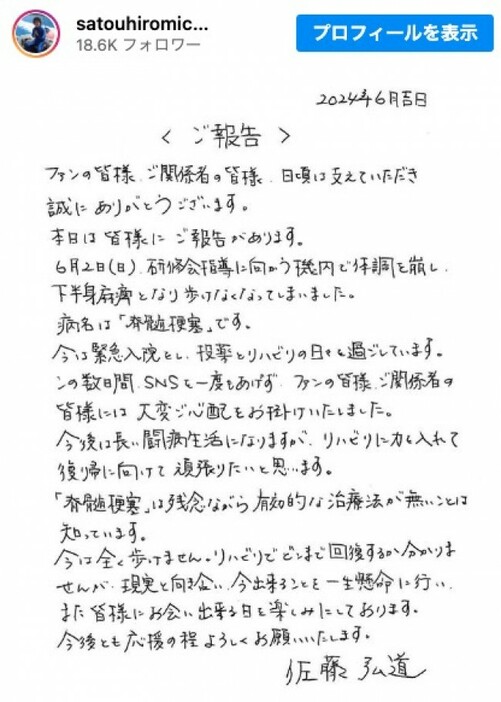 satouhiromic...
18.6K フォロワー
プロフィールを表示
2024年6月吉日
< ご報告 >
ファンの皆様、ご関係者の皆様、日頃は支えていただき
誠にありがとうございます。
本日は皆様にご報告があります。
6月2日(日)、研修会指導に向かう機内で体調を崩し、
下半身麻痺となり歩けなくなってしまいました。
病名は「脊髄梗塞」です。
今は緊急入院をし、投薬とリハビリの日々を過ごしています。
この数日間、SNSを一度もあげず、ファンの皆様、ご関係者の
皆様には大変ご心配をお掛けいたしました。
今後は長い闘病生活になりますが、リハビリに力を入れて
復帰に向けて頑張りたいと思います。
「脊髄梗塞」は残念ながら有効的な治療法が無いことは
知っています。
今は全く歩けません。リハビリでどこまで回復するか分かりま
せんが、現実と向き合い、今出来ることを一生懸命に行い、
また皆様にお会い出来る日を楽しみにしております。
今後とも応援の程よろしくお願いいたします。
佐藤弘道